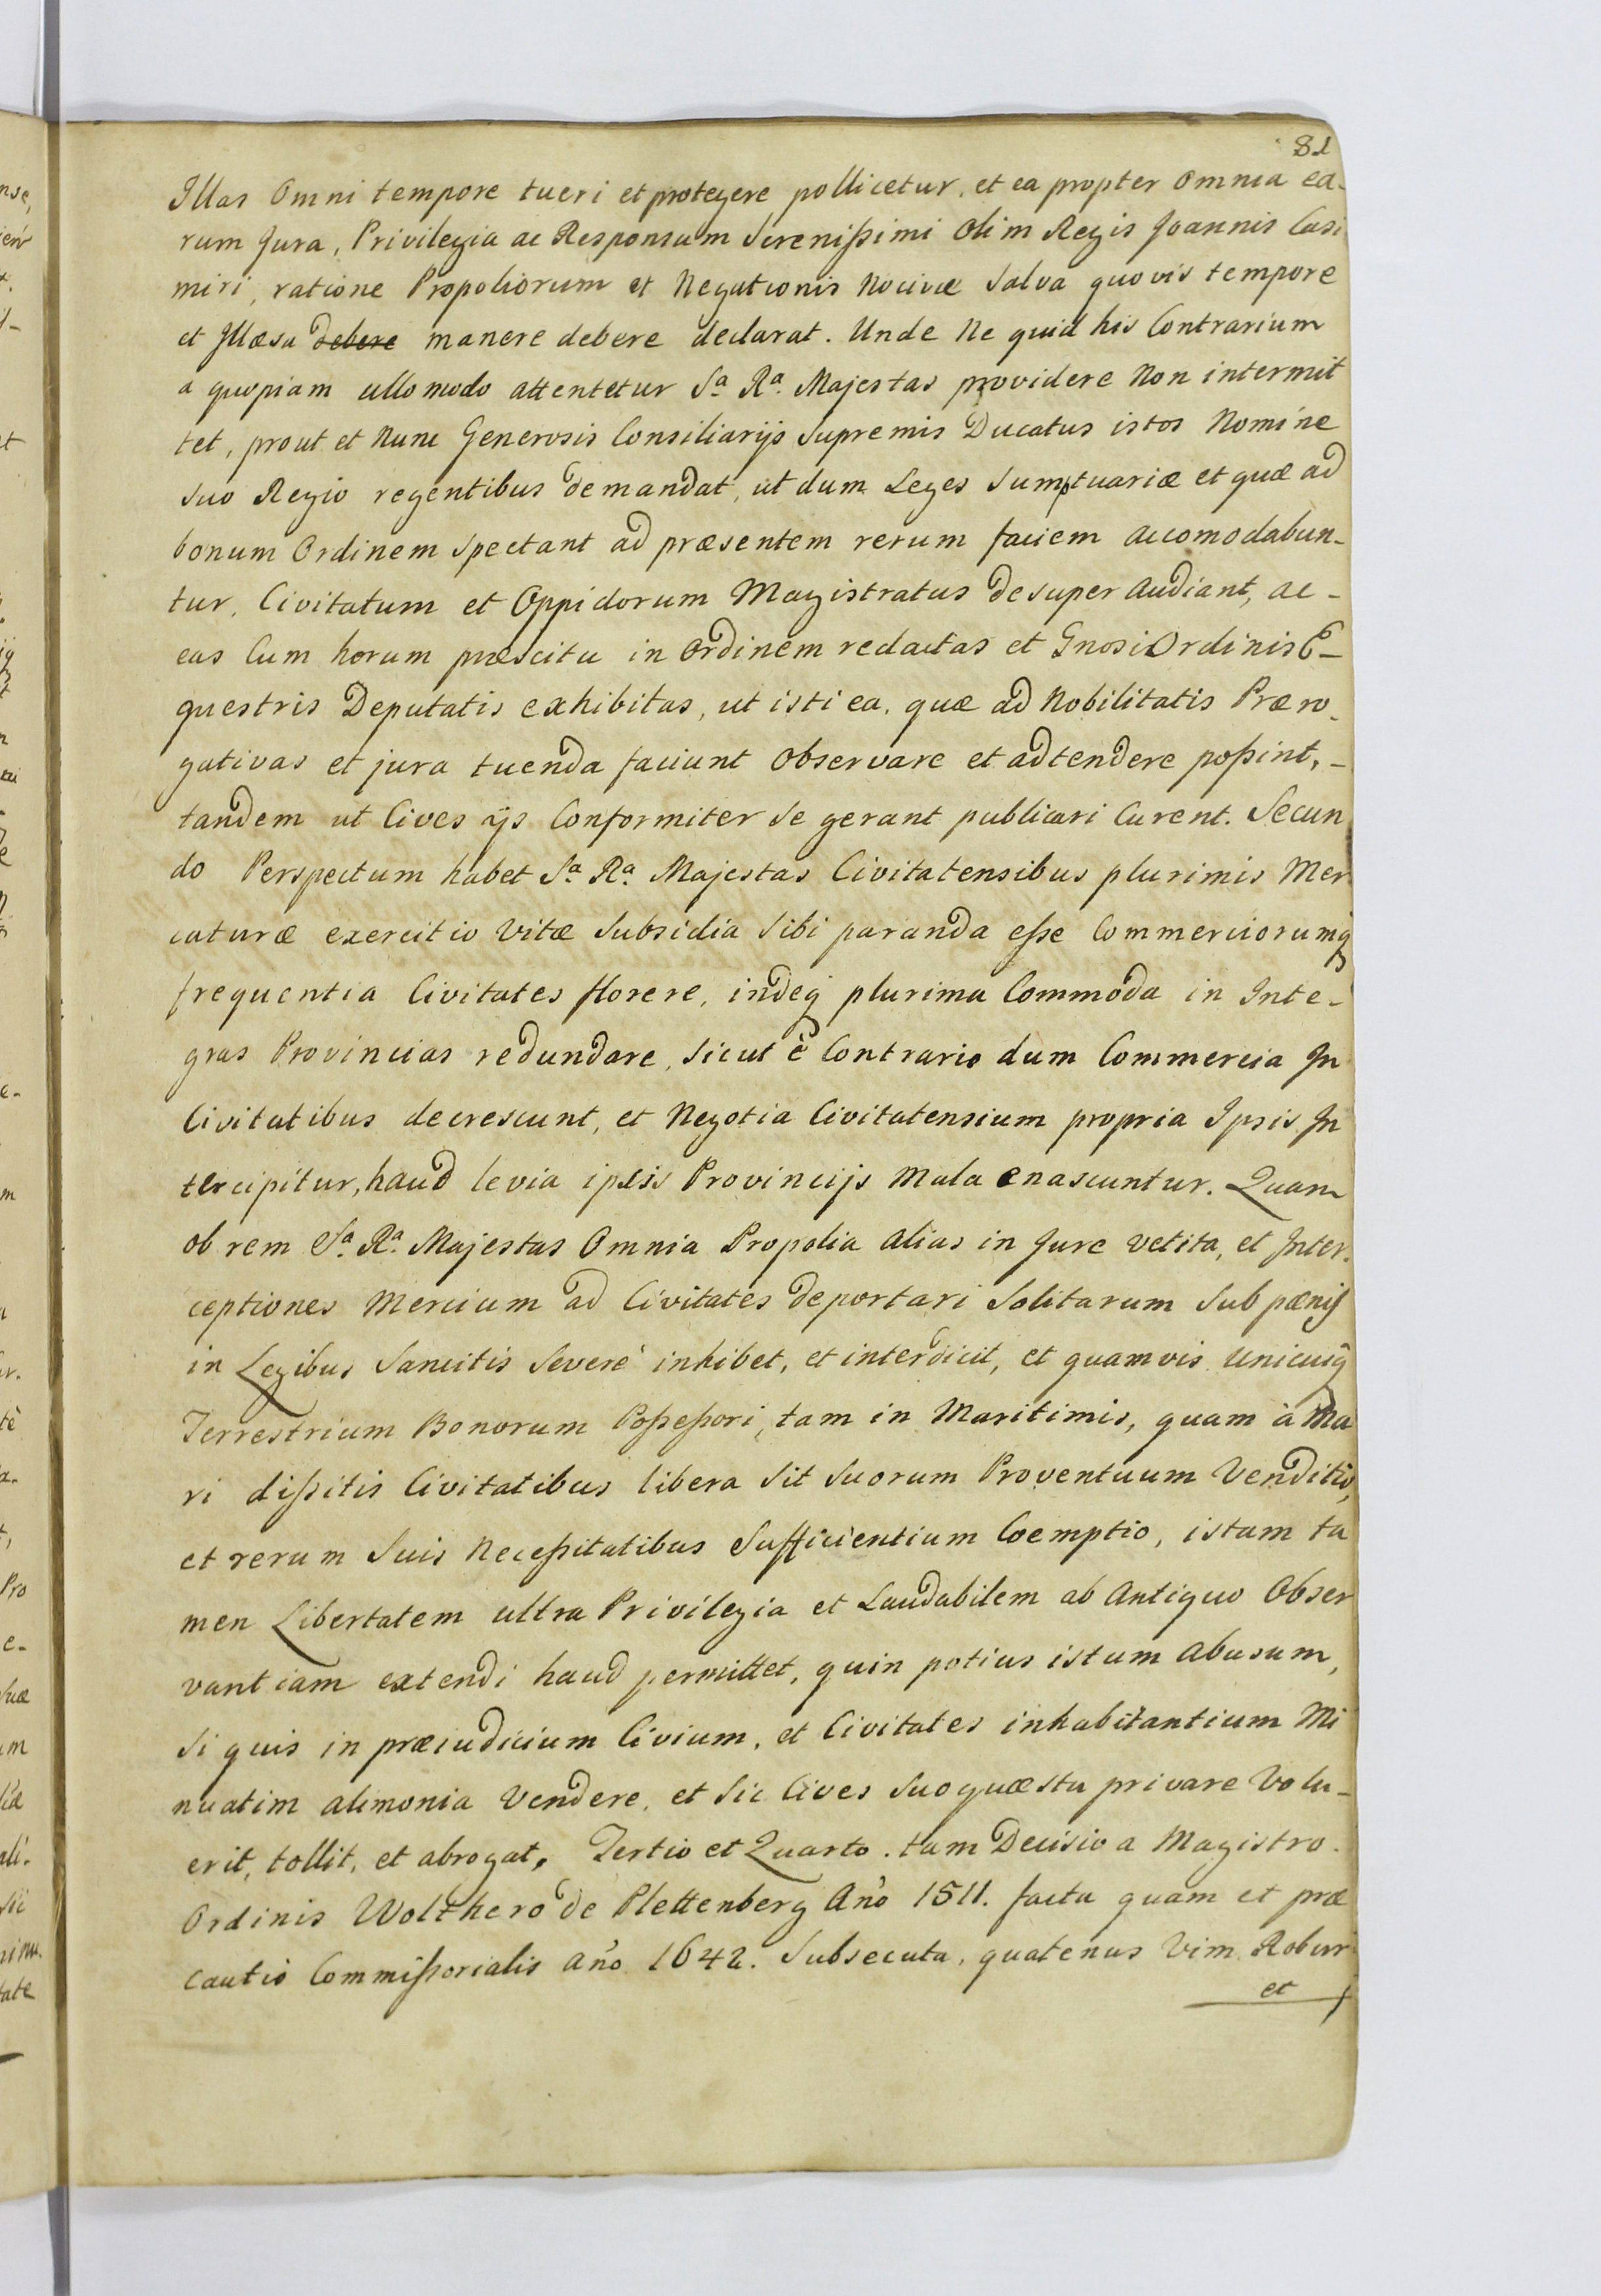 81
Illas Omni tempore tueri et protegere pollicetur, et ea propter Omnia ea-
rum Jura, Privilegia ac Responsum Serenißimi Olim Regis Joannis Casi
miri, ratione Propoliorum et Negutionis Nocivæ Salva quovis tempore
et Illæsa debere manere debere declarat. Unde Ne quid his Contrarium
a quopiam ullo modo attentetur Sa. Ra. Majestas providere Non intermit
tet, prout et Nunc Generosis Consiliarijs Supremis Ducatus istos Nomine
suo Regio regentibus demandat, ut dum Leges Sumptuariæ et quæ ad
bonum Ordinem spectant ad præsentem rerum faciem accomodabun-
tur, Civitatum et Oppidorum Magistratus desuper Audiant, ac-
eas Cum horum præscitu in Ordinem redactas et Gnosi Ordinis E-
questris Deputatis exhibitas, ut isti ea, quæ ad Nobilitatis Præro-
gativas et jura tuenda faciunt Observare et adtendere poßint,-
tandem ut Cives ijs Conformiter se gerant publicari Curent. Secun
do Perspectum habet Sa. Ra. Majestas Civitatensibus plurimis Mer
caturæ exercitio Vitæ Subsidia Sibi paranda eſse Commerciorumq
frequentia Civitates florere, indeq plurima Commoda in Inte-
gras Provincias redundare, Sicut è Contrario dum Commercia In
Civitatibus decrescunt, et Negotia Civitatensium propria Ipsis In
tercipitur, haud levia ipsis Provincijs Mala enascuntur. Quam
ob rem Sa. Ra. Majestas Omnia Propolia alias in Jure vetita, et Inter-
ceptiones Mercium ad Civitates deportari Solitarum Sub pænis
in Legibus Sancitis Severè inhibet, et interdicit, et quamvis Unicuiq
Terrestrium Bonorum Poßeßori, tam in Maritimis, quam à Ma
ri dißitis Civitatibus libera Sit Suorum Proventuum Venditio,
et rerum Suis Neceßitatibus Sufficientium Coemptio, istam ta
men Libertatem ultra Privilegia et Laudabilem ab Antiquo Obser
vantiam extendi haud permittet, quin potius istum Abusum,
Si quis in præiudicium Civium, et Civitates inhabitantium Mi
nuatim alimonia Vendere, et Sic Cives Suo quæstu privare Volu-
erit, tollit, et abrogat. Tertio et Quarto. tam Decisio a Magistro
Ordinis Wolthero de Plettenberg Año 1511. facta quam et præ
cautio Commißorialis Año 1642. Subsecuta, quatenus Vim Robur
et